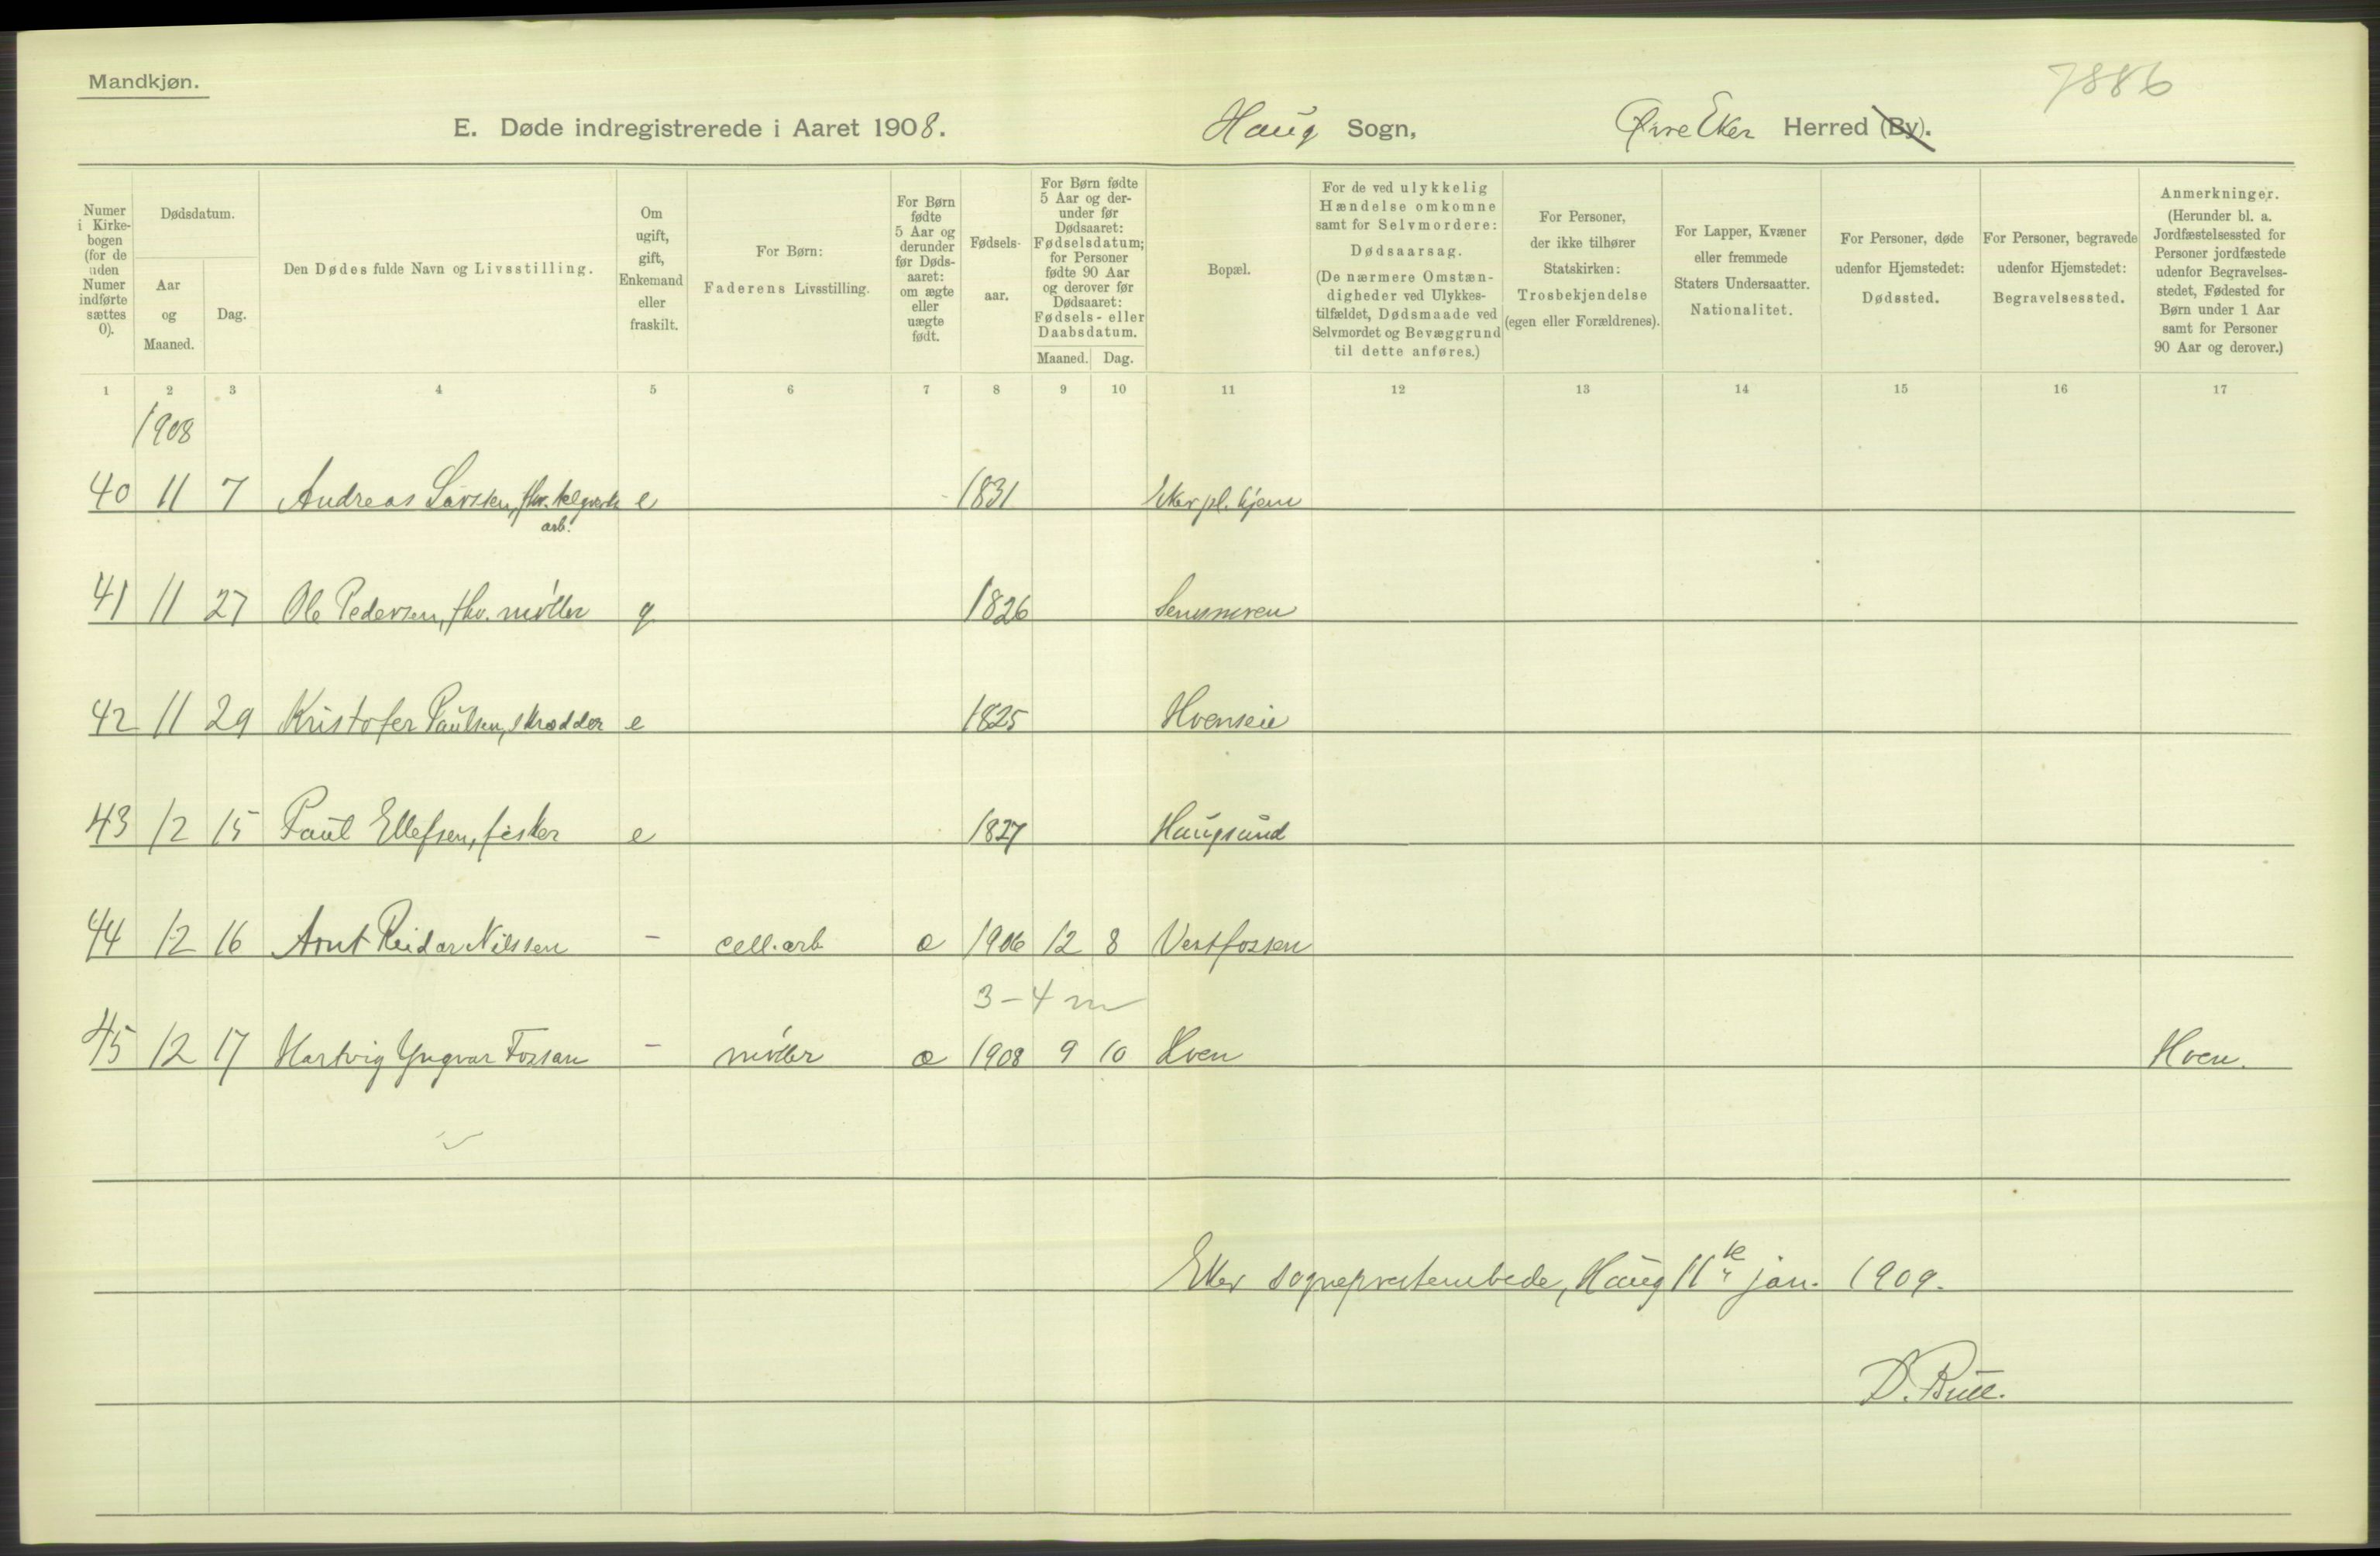 Mandkjøn.
7886
E. Døde indregistrerede i Aaret 1908. Haug Sogn, Øvre Eker Herred (By).
Numer i Kirkebogen (for de uden Numer indførte sættes 0).
Dødsdatum.
Aar og Maaned.
Dag.
Den Dødes fulde Navn og Livsstilling.
Om ugift, gift, Enkemand eller fraskilt.
For Børn: Faderens Livsstilling.
For Børn fødte 5 Aar og derunder før Dødsaaret: om ægte eller uægte født.
Fødselsaar.
For Børn fødte 5 Aar og derunder før Dødsaaret: Fødselsdatum; for Personer fødte 90 Aar og derover før Dødsaaret: Fødsels- eller Daabsdatum.
Maaned. Dag.
Bopæl.
For de ved ulykkelig Hændelse omkomne samt for Selvmordere: Dødsaarsag. (De nærmere Omstændigheder ved Ulykkestilfældet, Dødsmaade ved Selvmordet og Bevæggrund til dette anføres.)
For Personer, der ikke tilhører Statskirken: Trosbekjendelse (egen eller Forældrenes).
For Lapper, Kvæner eller fremmede Staters Undersaatter. Nationalitet.
For Personer, døde udenfor Hjemstedet: Dødssted.
For Personer, begravede udenfor Hjemstedet: Begravelsessted.
Anmerkninger. (Herunder bl. a. Jordfæstelsessted for Personer jordfæstede udenfor Begravelsesstedet, Fødested for Børn under 1 Aar samt for Personer 90 Aar og derover.)
1 2 3 4 5 6 7 8 9 10 11 12 13 14 15 16 17
1908
40 11 7 Andreas Larsen, fhv. e 1831 Eker pl. hjem
arb.
41 11 27 Ole Pedersen, fhv. møller g 1826
42 11 29 Kristofer Paulsen, skrædder e 1825 Hvenseie
43 12 15 Paul Ellefsen, fisker e 1827 Haugsund
44 12 16 Arnt Reidar Nilssen - cell. arb æ 1906 12 8 Vestfossen
3 - 4 m
45 12 17 Hartvig Yngvar Fossan - møller æ 1908 9 10 Hven Hven.
Eker sogneprestembede, Haug 11te jan. 1909.